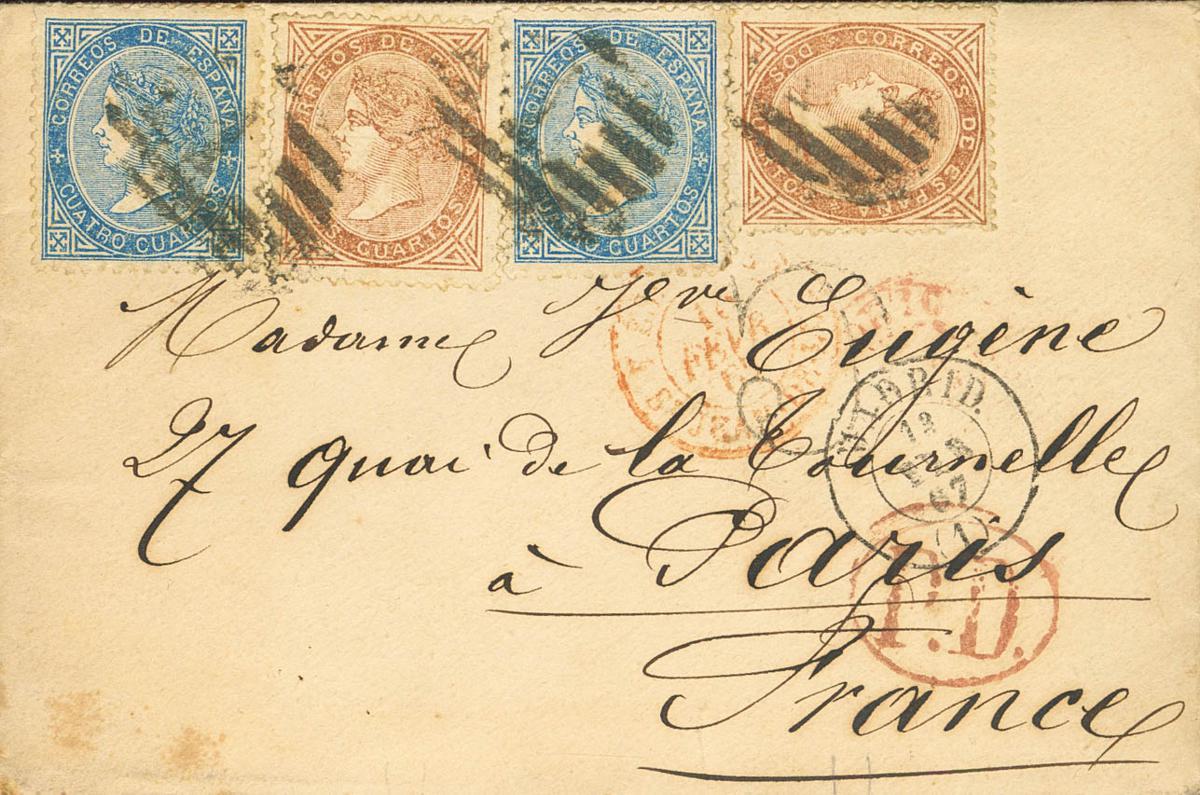 CORREOS DE ESPAÑA
CUATRO CUARTOS
CORREOS DE
CUARTOS
CORREOS DE ESPAÑA
CUATRO CUARTOS
CORREOS DE ESPAÑA
DOS CUARTOS
Madame Vve Eugène
27 quai de la Tournelle
à Paris
France
MADRID.
12
FEB
67
(1)
FEVR
P.D.